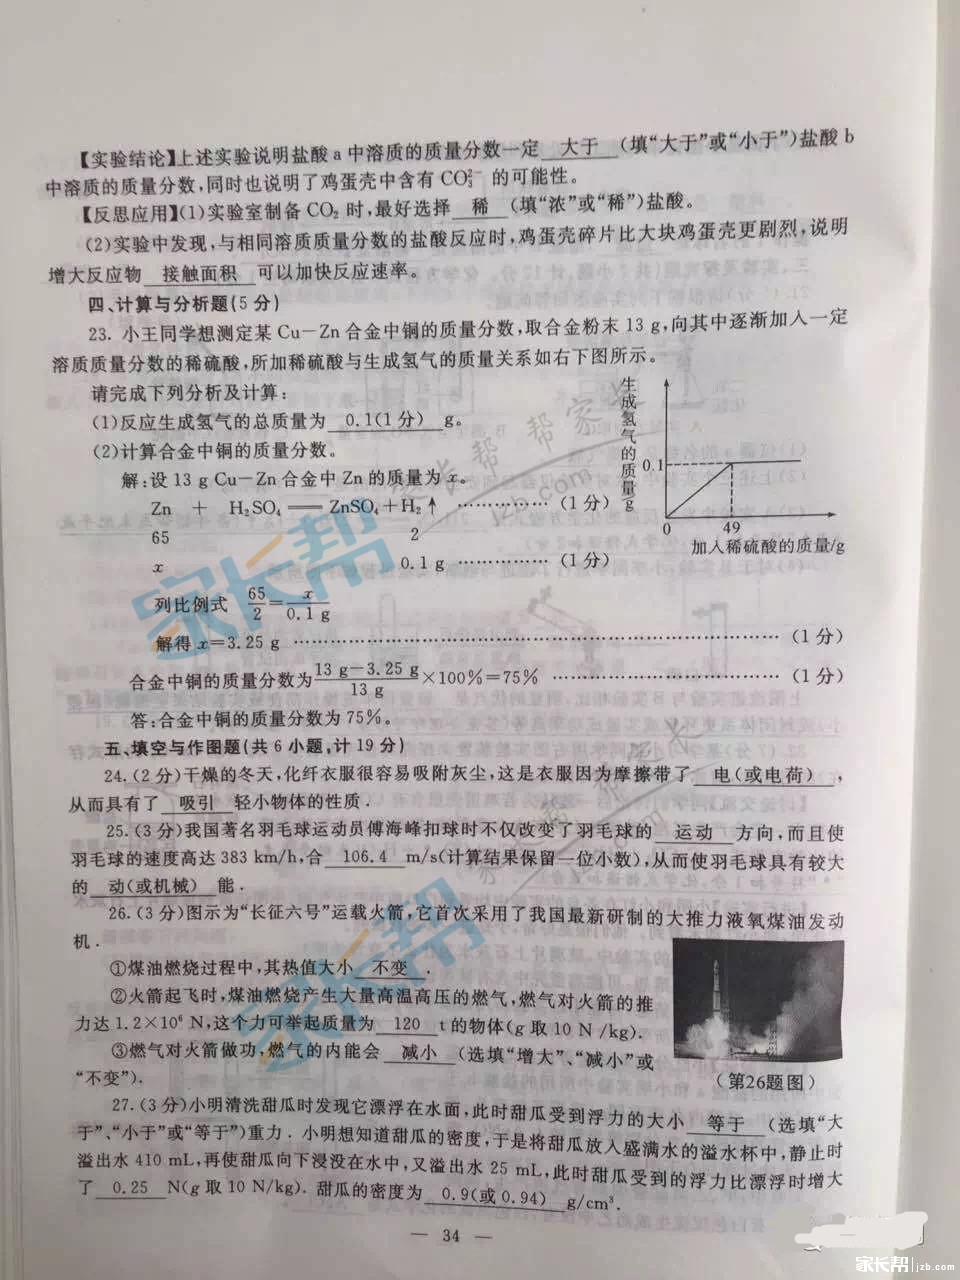 【实验结论】上述实验说明盐酸a中溶质的质量分数一定 大于 (填“大于”或“小于”)盐酸b
中溶质的质量分数,同时也说明了鸡蛋壳中含有CO₃²⁻的可能性。
【反思应用】(1)实验室制备CO₂时,最好选择 稀 (填“浓”或“稀”)盐酸。
(2)实验中发现,与相同溶质质量分数的盐酸反应时,鸡蛋壳碎片比大块鸡蛋壳更剧烈,说明
增大反应物 接触面积 可以加快反应速率。
四、计算与分析题(5分)
23. 小王同学想测定某Cu-Zn合金中铜的质量分数,取合金粉末13 g,向其中逐渐加入一定
溶质质量分数的稀硫酸,所加稀硫酸与生成氢气的质量关系如右下图所示。
请完成下列分析及计算:
(1)反应生成氢气的总质量为 0.1(1分) g。
(2)计算合金中铜的质量分数。
解:设13 g Cu-Zn合金中Zn的质量为x。
Zn + H₂SO₄ ══ ZnSO₄+H₂↑ …………… (1分)
65 2
x 0.1 g …………… (1分)
列比例式 65/2=x/0.1 g
解得x=3.25 g …………………………………… (1分)
合金中铜的质量分数为(13 g-3.25 g)/13 g×100%=75% …………………… (1分)
答:合金中铜的质量分数为75%。
生成氢气的质量/g
0.1
0 49
加入稀硫酸的质量/g
五、填空与作图题(共6小题,计19分)
24.(2分)干燥的冬天,化纤衣服很容易吸附灰尘,这是衣服因为摩擦带了 电(或电荷) ,
从而具有了 吸引 轻小物体的性质.
25.(3分)我国著名羽毛球运动员傅海峰扣球时不仅改变了羽毛球的 运动 方向,而且使
羽毛球的速度高达383 km/h,合 106.4 m/s(计算结果保留一位小数),从而使羽毛球具有较大
的 动(或机械) 能.
26.(3分)图示为“长征六号”运载火箭,它首次采用了我国最新研制的大推力液氧煤油发动
机.
①煤油燃烧过程中,其热值大小 不变 .
②火箭起飞时,煤油燃烧产生大量高温高压的燃气,燃气对火箭的推
力达1.2×10⁶ N,这个力可举起质量为 120 t的物体(g取10 N/kg).
③燃气对火箭做功,燃气的内能会 减小 (选填“增大”、“减小”或
“不变”).
(第26题图)
27.(3分)小明清洗甜瓜时发现它漂浮在水面,此时甜瓜受到浮力的大小 等于 (选填“大
于”、“小于”或“等于”)重力. 小明想知道甜瓜的密度,于是将甜瓜放入盛满水的溢水杯中,静止时
溢出水410 mL,再使甜瓜向下浸没在水中,又溢出水25 mL,此时甜瓜受到的浮力比漂浮时增大
了 0.25 N(g取10 N/kg). 甜瓜的密度为 0.9(或0.94) g/cm³.
— 34 —
家长帮
家长帮
家长帮 jzb.com
家长帮
家长帮 jzb.com